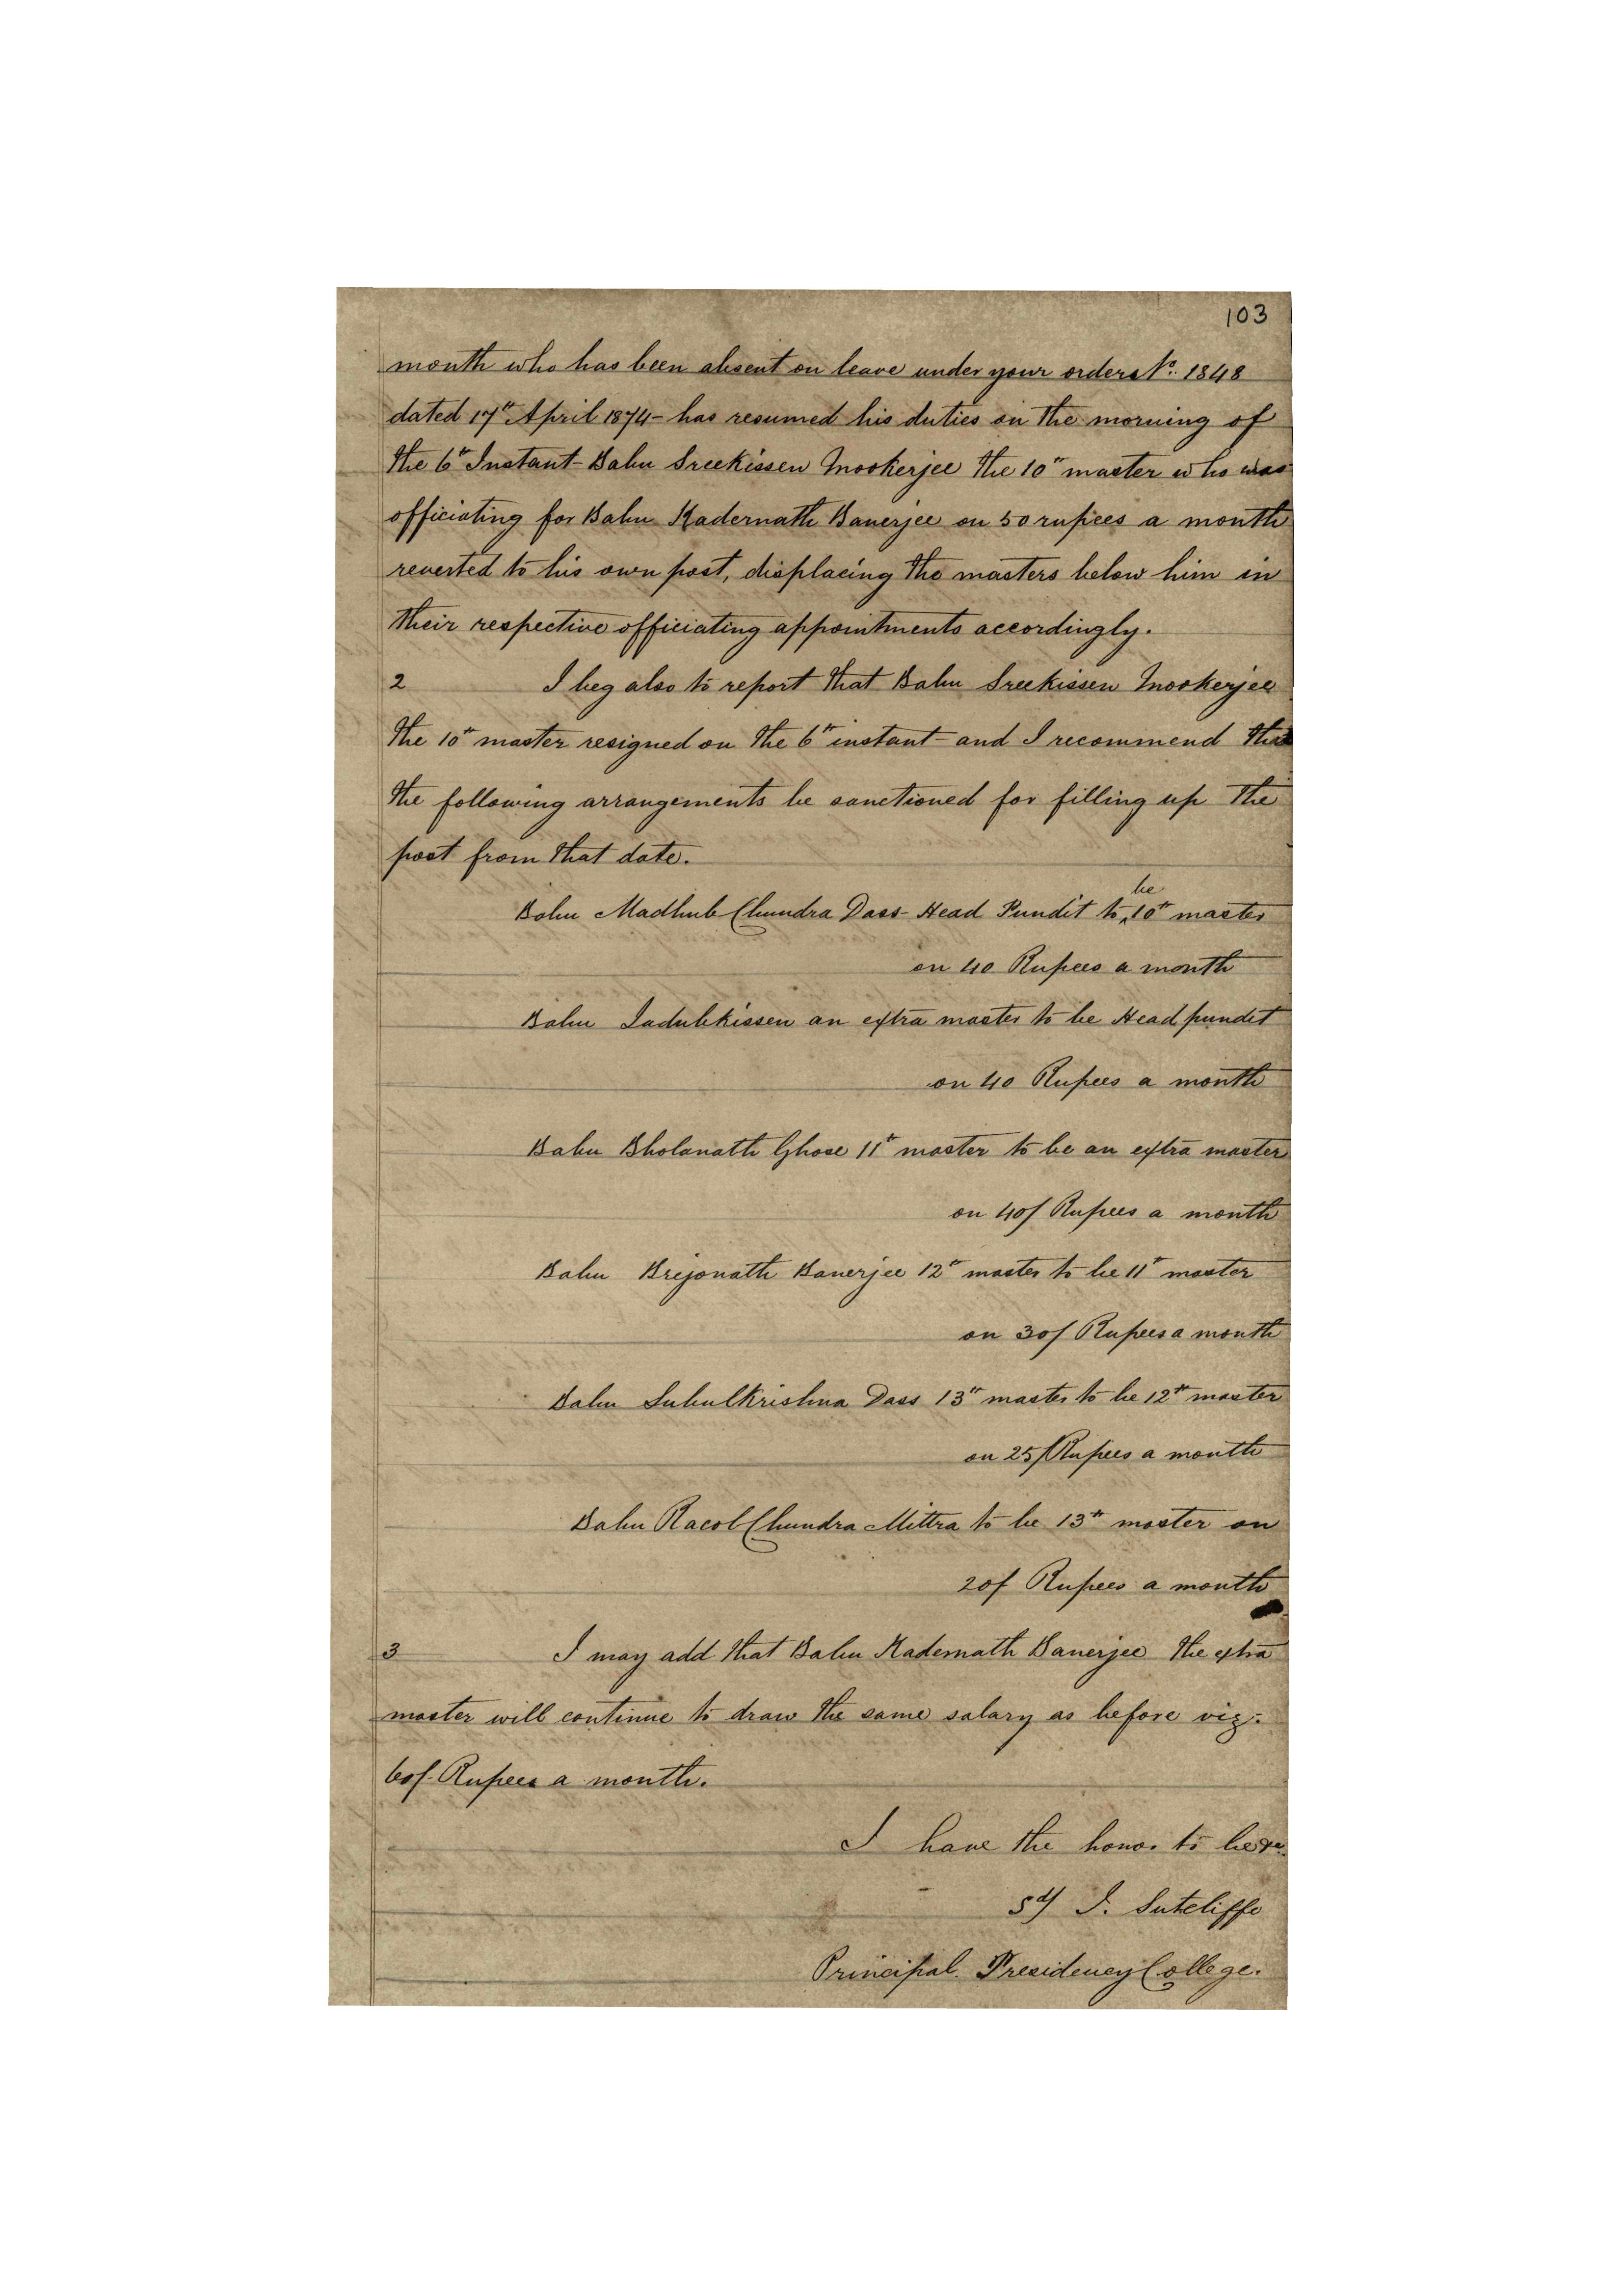 103
month who has been absent on leave under your orders No. 1348
dated 17th April 1874 - has resumed his duties on the morning of
the 6th Instant - Babu Sreekissen Mookerjee the 10th master who was
officiating for Babu Kadernath Banerjee on 50 rupees a month
reverted to his own post, displacing the masters below him in
their respective officiating appointments accordingly.
2 I beg also to report that Babu Sreekissen Mookerjee
the 10th master resigned on the 6th instant - and I recommend that
the following arrangements be sanctioned for filling up the
post from that date.
be
Babu Madhub Chundra Dass - Head Pundit to ^ 10th master
on 40 Rupees a month
Babu Jadubkissen an extra master to be Head pundit
on 40 Rupees a month
Babu Bholanath Ghose 11th master to be an extra master
on 40/ Rupees a month
Babu Brejonath Banerjee 12th master to be 11th master
on 30/ Rupees a month
Babu Subulkrishna Dass 13th master to be 12th master
on 25/ Rupees a month
Babu Chundra Mittra to be 13th master on
20/ Rupees a month
3 I may add that Babu Kadernath Banerjee the extra
master will continue to draw the same salary as before viz:
60/- Rupees a month.
I have the honor to be
Sd/ J. Sutcliffe
Principal. Presidency College.